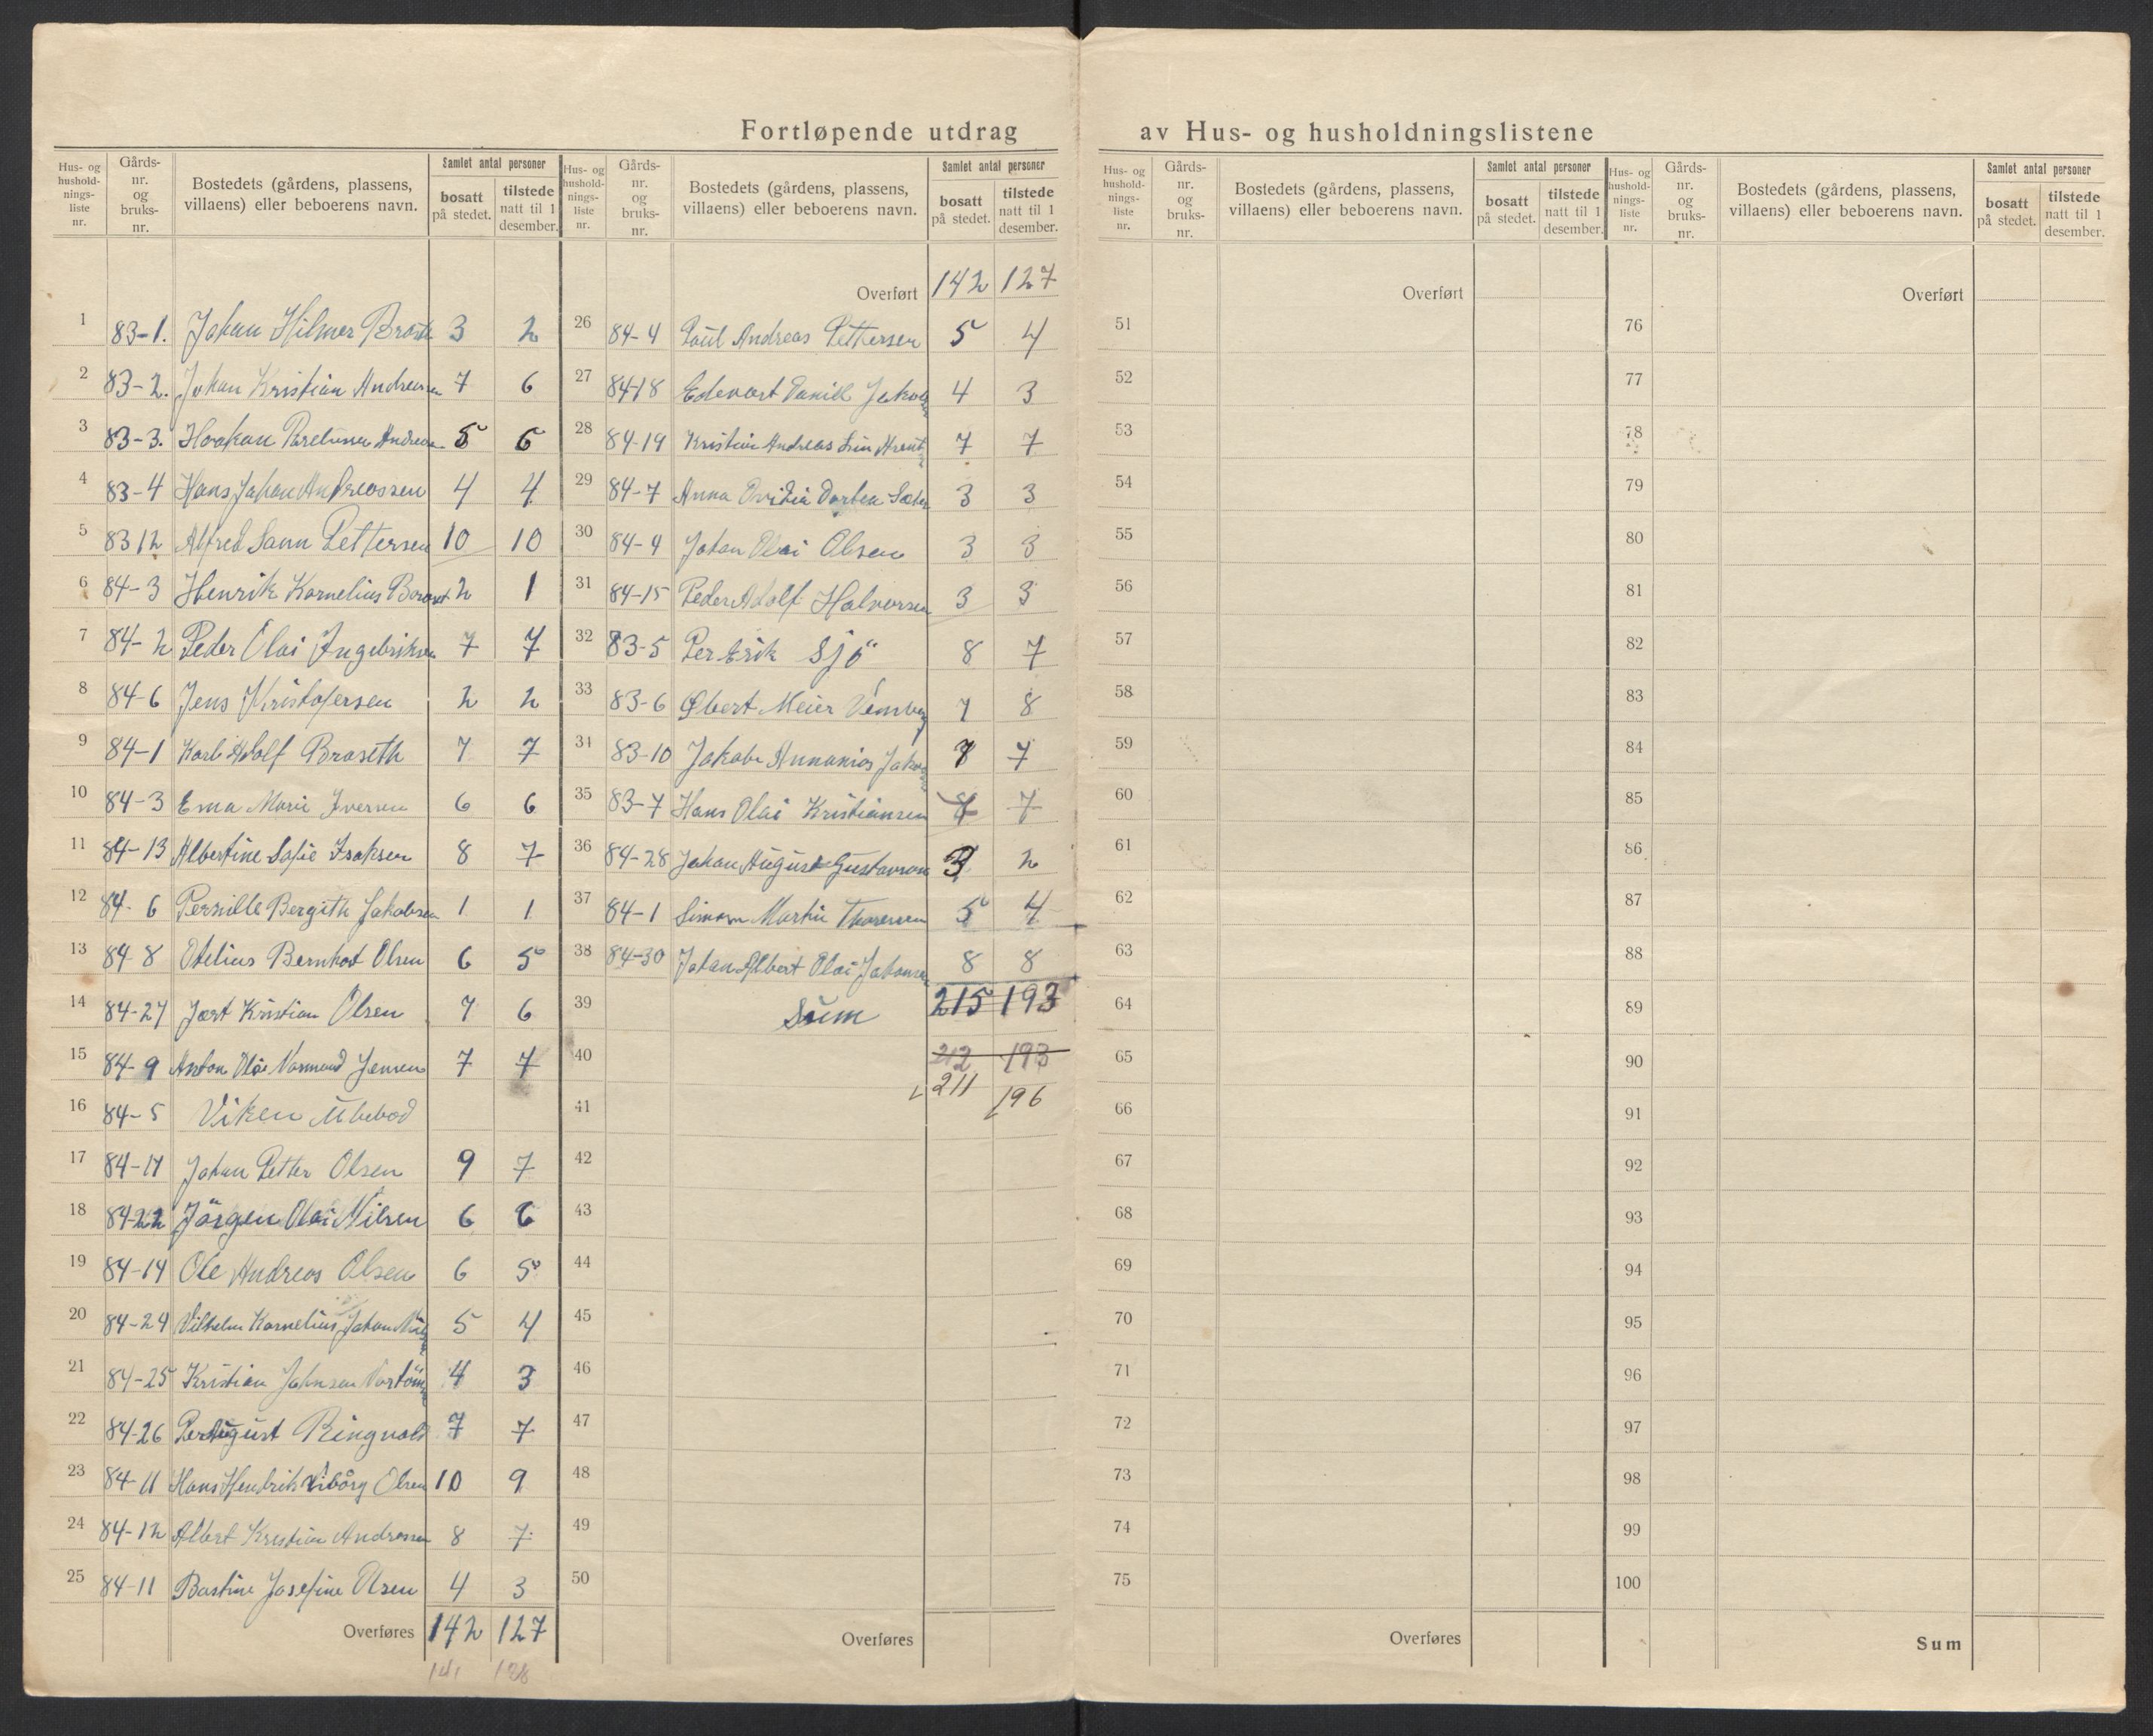 Fortløpende utdrag av Hus- og husholdningslistene
Hus- og hushold-nings-liste nr. Gårds-nr. og bruks-nr. Bostedets (gårdens, plassens, villaens) eller beboerens navn. Samlet antal personer bosatt på stedet. tilstede natt til 1 desember.
1 83-1. Johan Hilmer 3 2
2 83-2. Johan Kristian Andreassen 7 6
3 83-3. Haakan Andreasen 5 6
4 83-4 Hans Johan Andreassen 4 4
5 83 12 Alfred Sann Pettersen 10 10
6 84-3 Henrik Kornelius 2 1
7 84-2 Peder Olai Ingebriksen 7 7
8 84-6 Jens Kristofersen 2 2
9 84-1 Karl Adolf Braseth 7 7
10 84-3 Ema Marie Iversen 6 6
11 84-13 Albertine Sofie Isaksen 8 7
12 84-6 Pernille Bergith Jakobsen 1 1
13 84-8 Otelius Bernhot Olsen 6 5
14 84-27 Jort Kristian Olsen 7 6
15 84-9 Anton Olai Normand Jensen 7 7
16 84-5 Viken Ubebod
17 84-17 Johan Petter Olsen 9 7
18 84-22 Jörgen Olai Nilsen 6 6
19 84-14 Ole Andreas Olsen 6 5
20 84-29 Vilhelm Kornelius Johan 5 4
21 84-25 Kristian Johnsen 4 3
22 84-26 Per August Ringvold 7 7
23 84-11 Hans Hendrik Viborg Olsen 10 9
24 84-12 Albert Kristian Andreassen 8 7
25 84-11 Bastine Josefine Olsen 4 3
Overføres 142 127
141 128
Hus- og hushold-nings-liste nr. Gårds-nr. og bruks-nr. Bostedets (gårdens, plassens, villaens) eller beboerens navn. Samlet antal personer bosatt på stedet. tilstede natt til 1 desember.
Overført 142 127
26 84-4 Paul Andreas Pettersen 5 4
27 84-18 Edevart Daniel Jakob 4 3
28 84-19 Kristian Andreas 7 7
29 84-7 Anna Ovidia Dortea 3 3
30 84-4 Johan Olai Olsen 3 3
31 84-15 Peder Adolf Halvorsen 3 3
32 83-5 Per Erik Sjö 8 7
33 83-6 Obert Meier 7 8
34 83-10 Jakob Annanias 7 7
35 83-7 Hans Olai Kristiansen 7 7
36 84-28 Johan August Gustavson 3 2
37 84-1 Simon Martin Thoresen 5 4
38 84-30 Johan Albert Olai Johansen 8 8
39 Sum 215 193
40 212 193
211 196
41
42
43
44
45
46
47
48
49
50
Overføres
Hus- og hushold-nings-liste nr. Gårds-nr. og bruks-nr. Bostedets (gårdens, plassens, villaens) eller beboerens navn. Samlet antal personer bosatt på stedet. tilstede natt til 1 desember.
Overført
51
52
53
54
55
56
57
58
59
60
61
62
63
64
65
66
67
68
69
70
71
72
73
74
75
Overføres
Hus- og hushold-nings-liste nr. Gårds-nr. og bruks-nr. Bostedets (gårdens, plassens, villaens) eller beboerens navn. Samlet antal personer bosatt på stedet. tilstede natt til 1 desember.
Overført
76
77
78
79
80
81
82
83
84
85
86
87
88
89
90
91
92
93
94
95
96
97
98
99
100
Sum